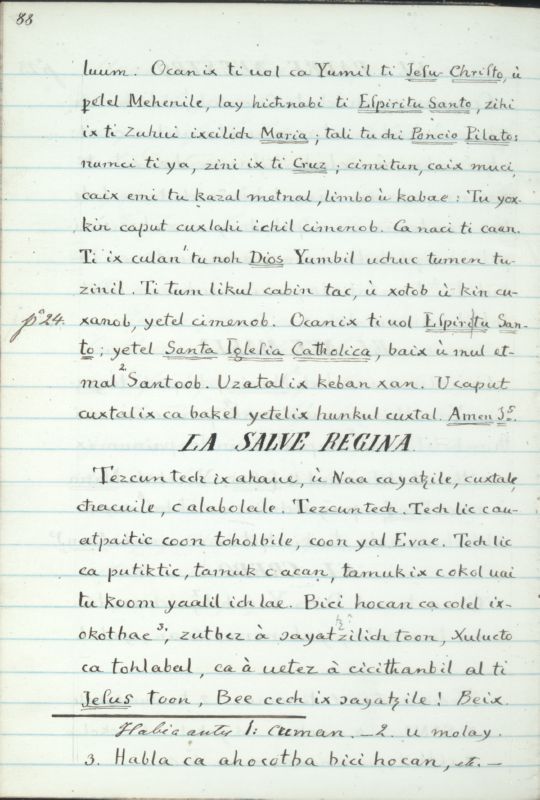 88
luum. Ocanix ti uol ca Yumil ti Jesu-Christo, ù
pelel Mehenile, lay hichnabi ti Espiritu Santo, zihi
ix ti Zuhui ixcilich Maria; tali tu chi Poncio Pilato;
numci ti ya, zini ix ti Cruz; cimitun, caix muci,
caix emi tu kazal metnal, limbo ù kabae: Tu yox-
kin caput cuxlahi ichil cimenob. Ca naci ti caan.
Ti ix culan tu noh Dios Yumbil uchuc tumen tu-
zinil. Ti tum likul cabin tac, ù xotob ù kin cu-
pª 24. xanob, yetel cimenob. Ocanix ti uol Espiritu San-
to; yetel Santa Iglesia Catholica, baix ù mul et-
mal 2. Santoob. Uzatalix keban xan. U caput
cuxtalix ca bakel yetelix hunkul cuxtal. Amen
LA SALVE REGINA
Tezcuntech ix ahaue, ù Naa cayatzile, cuxtale,
chacuile, c alabolale. Tezcuntech. Tech lic cau-
atpaitic coon toholbile, coon yal Evae. Tech lic
ca putiktic, tamuk c acan, tamuk ix c okol uai
tu koom yaalil ich lae. Bici hocan ca colel ix-
okotbae 3; zutbez à sayatzilich toon, Xulucto
ca tohlabal, ca à uetez à cicithanbil al ti
Jesus toon, Bee cech ix sayatzile! Beix.
Habia antes 1: cuman. _2. u molay.
3. Habla ca ahocotba bici hocan, etc. —